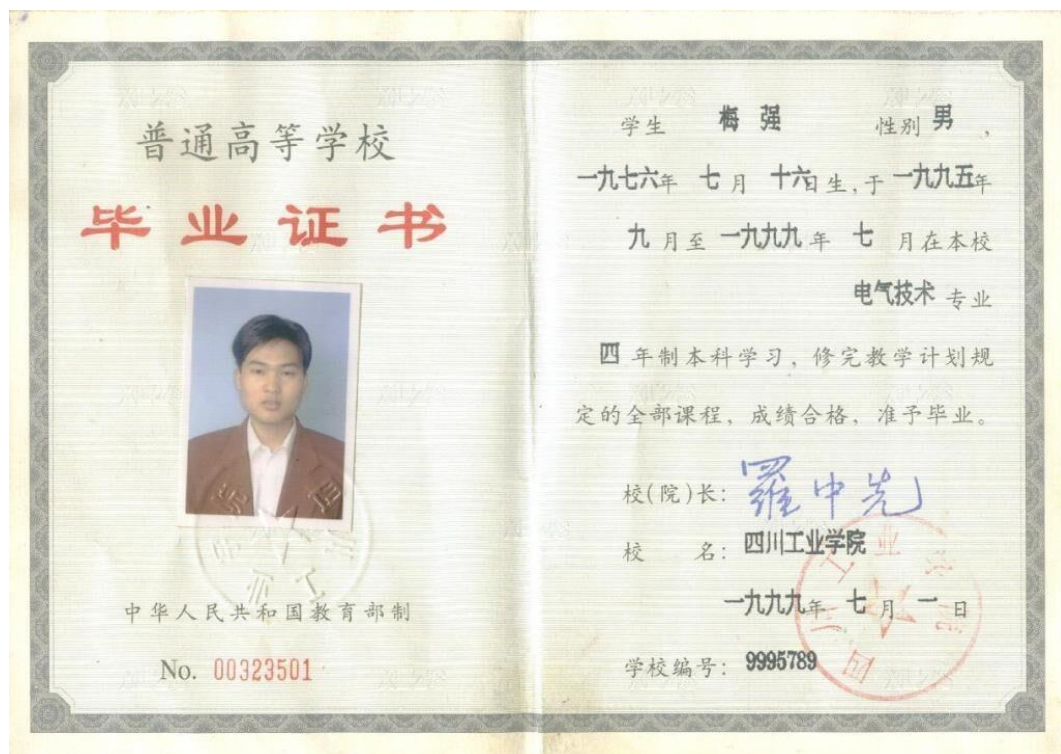 普通高等学校
毕业证书
中华人民共和国教育部制
No. 00323501
学生 梅强 性别 男 ，
一九七六年 七月 十六日生，于一九九五年
九月至一九九九年 七月在本校
电气技术 专业
四年制本科学习，修完教学计划规
定的全部课程，成绩合格，准予毕业。
校(院)长：羅中先
校 名：四川工业学院
一九九九年 七月 一日
学校编号：9995789
四川工业学院